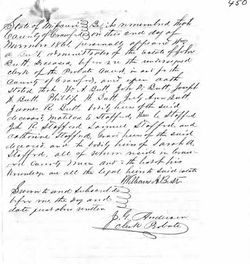 450
State of Missouri } Be it remembered that
County of Crawford } on this 2nd day of
November 1861 personally appeared
administrator of the estate of John
Butt, deceased, before me the undersigned
clerk of the Probate Court in and for the
County of Crawford, and upon oath
States that W. A Butt, John Butt, Joseph
Butt, Phillip Butt, July Ann Butt,
James R. Butt heirs of the said
deceased Matilda Stafford, Wm C. Stafford
Jno R. Stafford Samuel Stafford
Catharine Stafford, heirs of the said
deceased and the heirs of Sarah A
Stafford, all of whom reside in Craw-
ford County and to the best of his
Knowledge are all the legal heirs to said estate
William A. Butt
Sworn to and subscribed to
before me the day and
date just above written
J. G. Anderson
Clerk Probate